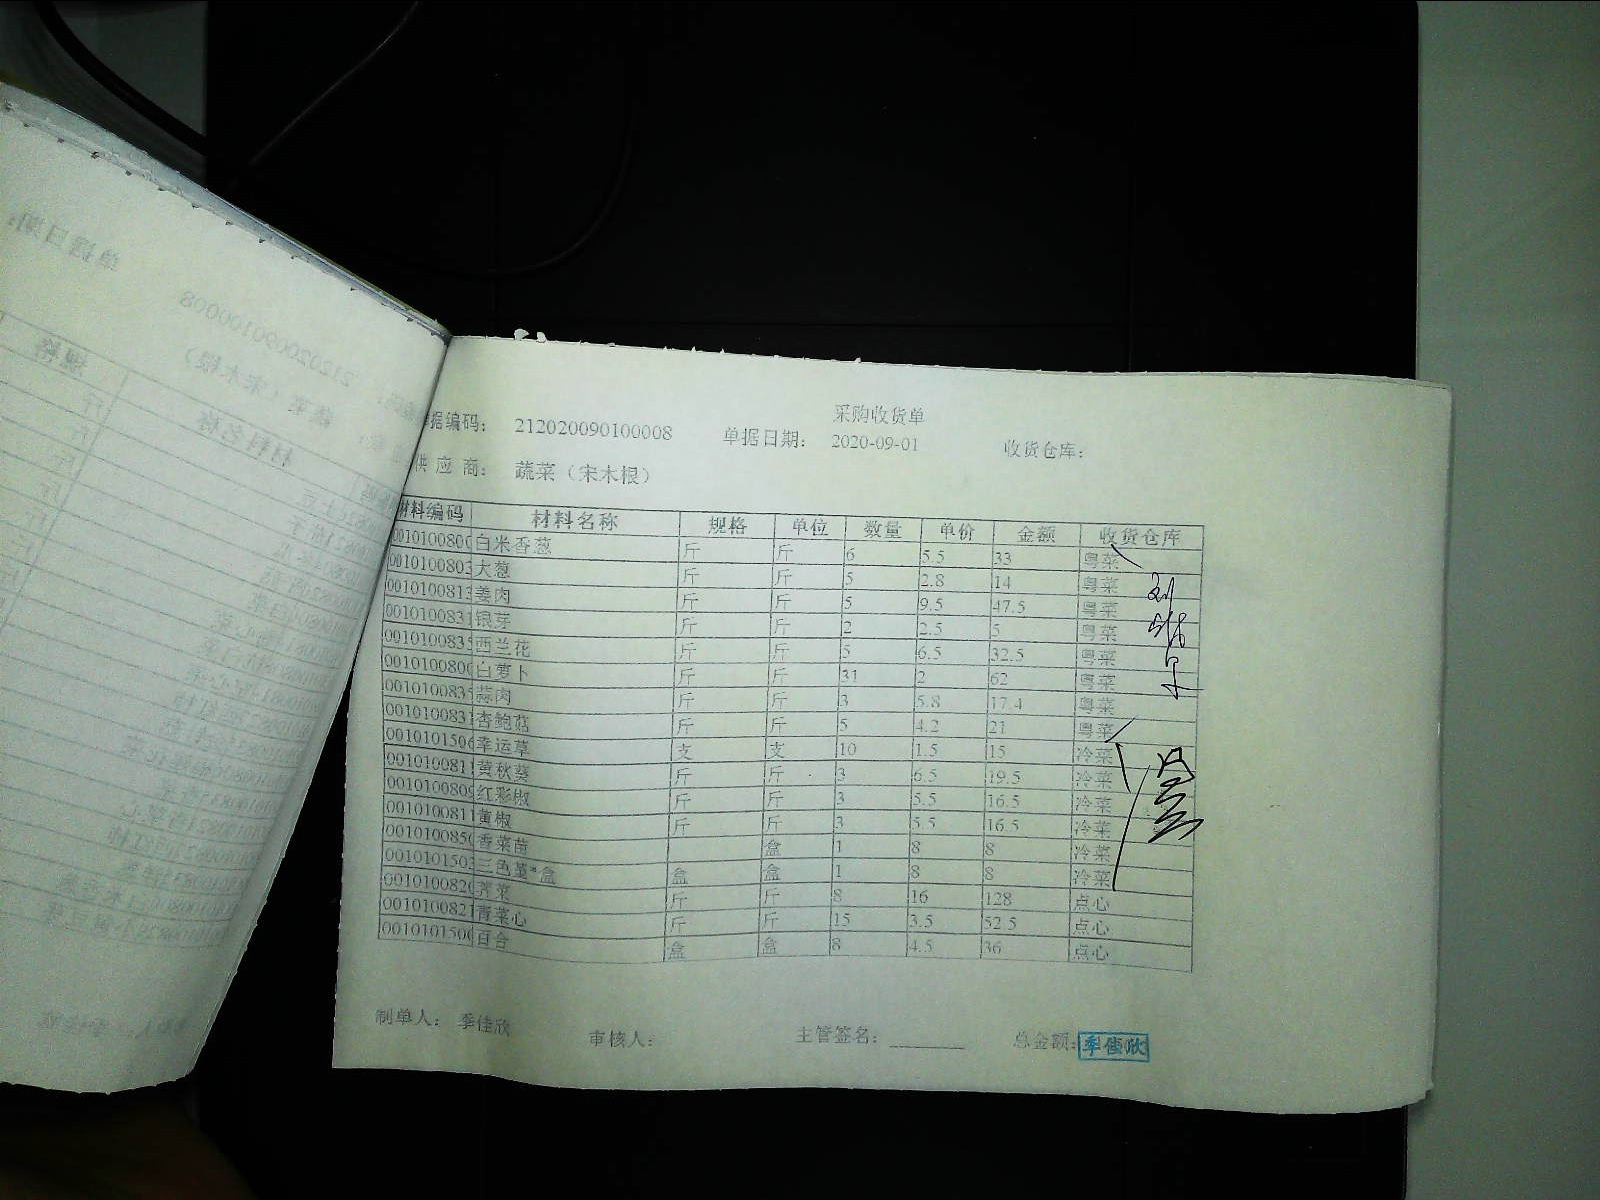 采购收货单
据编码： 212020090100008 单据日期： 2020-09-01 收货仓库：
供 应 商： 蔬菜（宋木根）
材料编码 材料名称 规格 单位 数量 单价 金额 收货仓库
001010080 白米香葱 斤 斤 6 5.5 33 粤菜
0010100803 大葱 斤 斤 5 2.8 14 粤菜
001010081 姜肉 斤 斤 5 9.5 47.5 粤菜
0010100831 银芽 斤 斤 2 2.5 5 粤菜
001010083 西兰花 斤 斤 5 6.5 32.5 粤菜
001010080 白萝卜 斤 斤 31 2 62 粤菜
001010083 蒜肉 斤 斤 3 5.8 17.4 粤菜
0010100831 杏鲍菇 斤 斤 5 4.2 21 粤菜
001010150 幸运草 支 支 10 1.5 15 冷菜
0010100811 黄秋葵 斤 斤 3 6.5 19.5 冷菜
001010080 红彩椒 斤 斤 3 5.5 16.5 冷菜
0010100811 黄椒 斤 斤 3 5.5 16.5 冷菜
001010085 香菜苗 盒 1 8 8 冷菜
001010150 三色堇*盒 盒 盒 1 8 8 冷菜
001010082 荠菜 斤 斤 8 16 128 点心
0010100821 青菜心 斤 斤 15 3.5 52.5 点心
001010150 百合 盒 盒 8 4.5 36 点心
制单人： 季佳欣 审核人： 主管签名： 总金额： 季佳欣